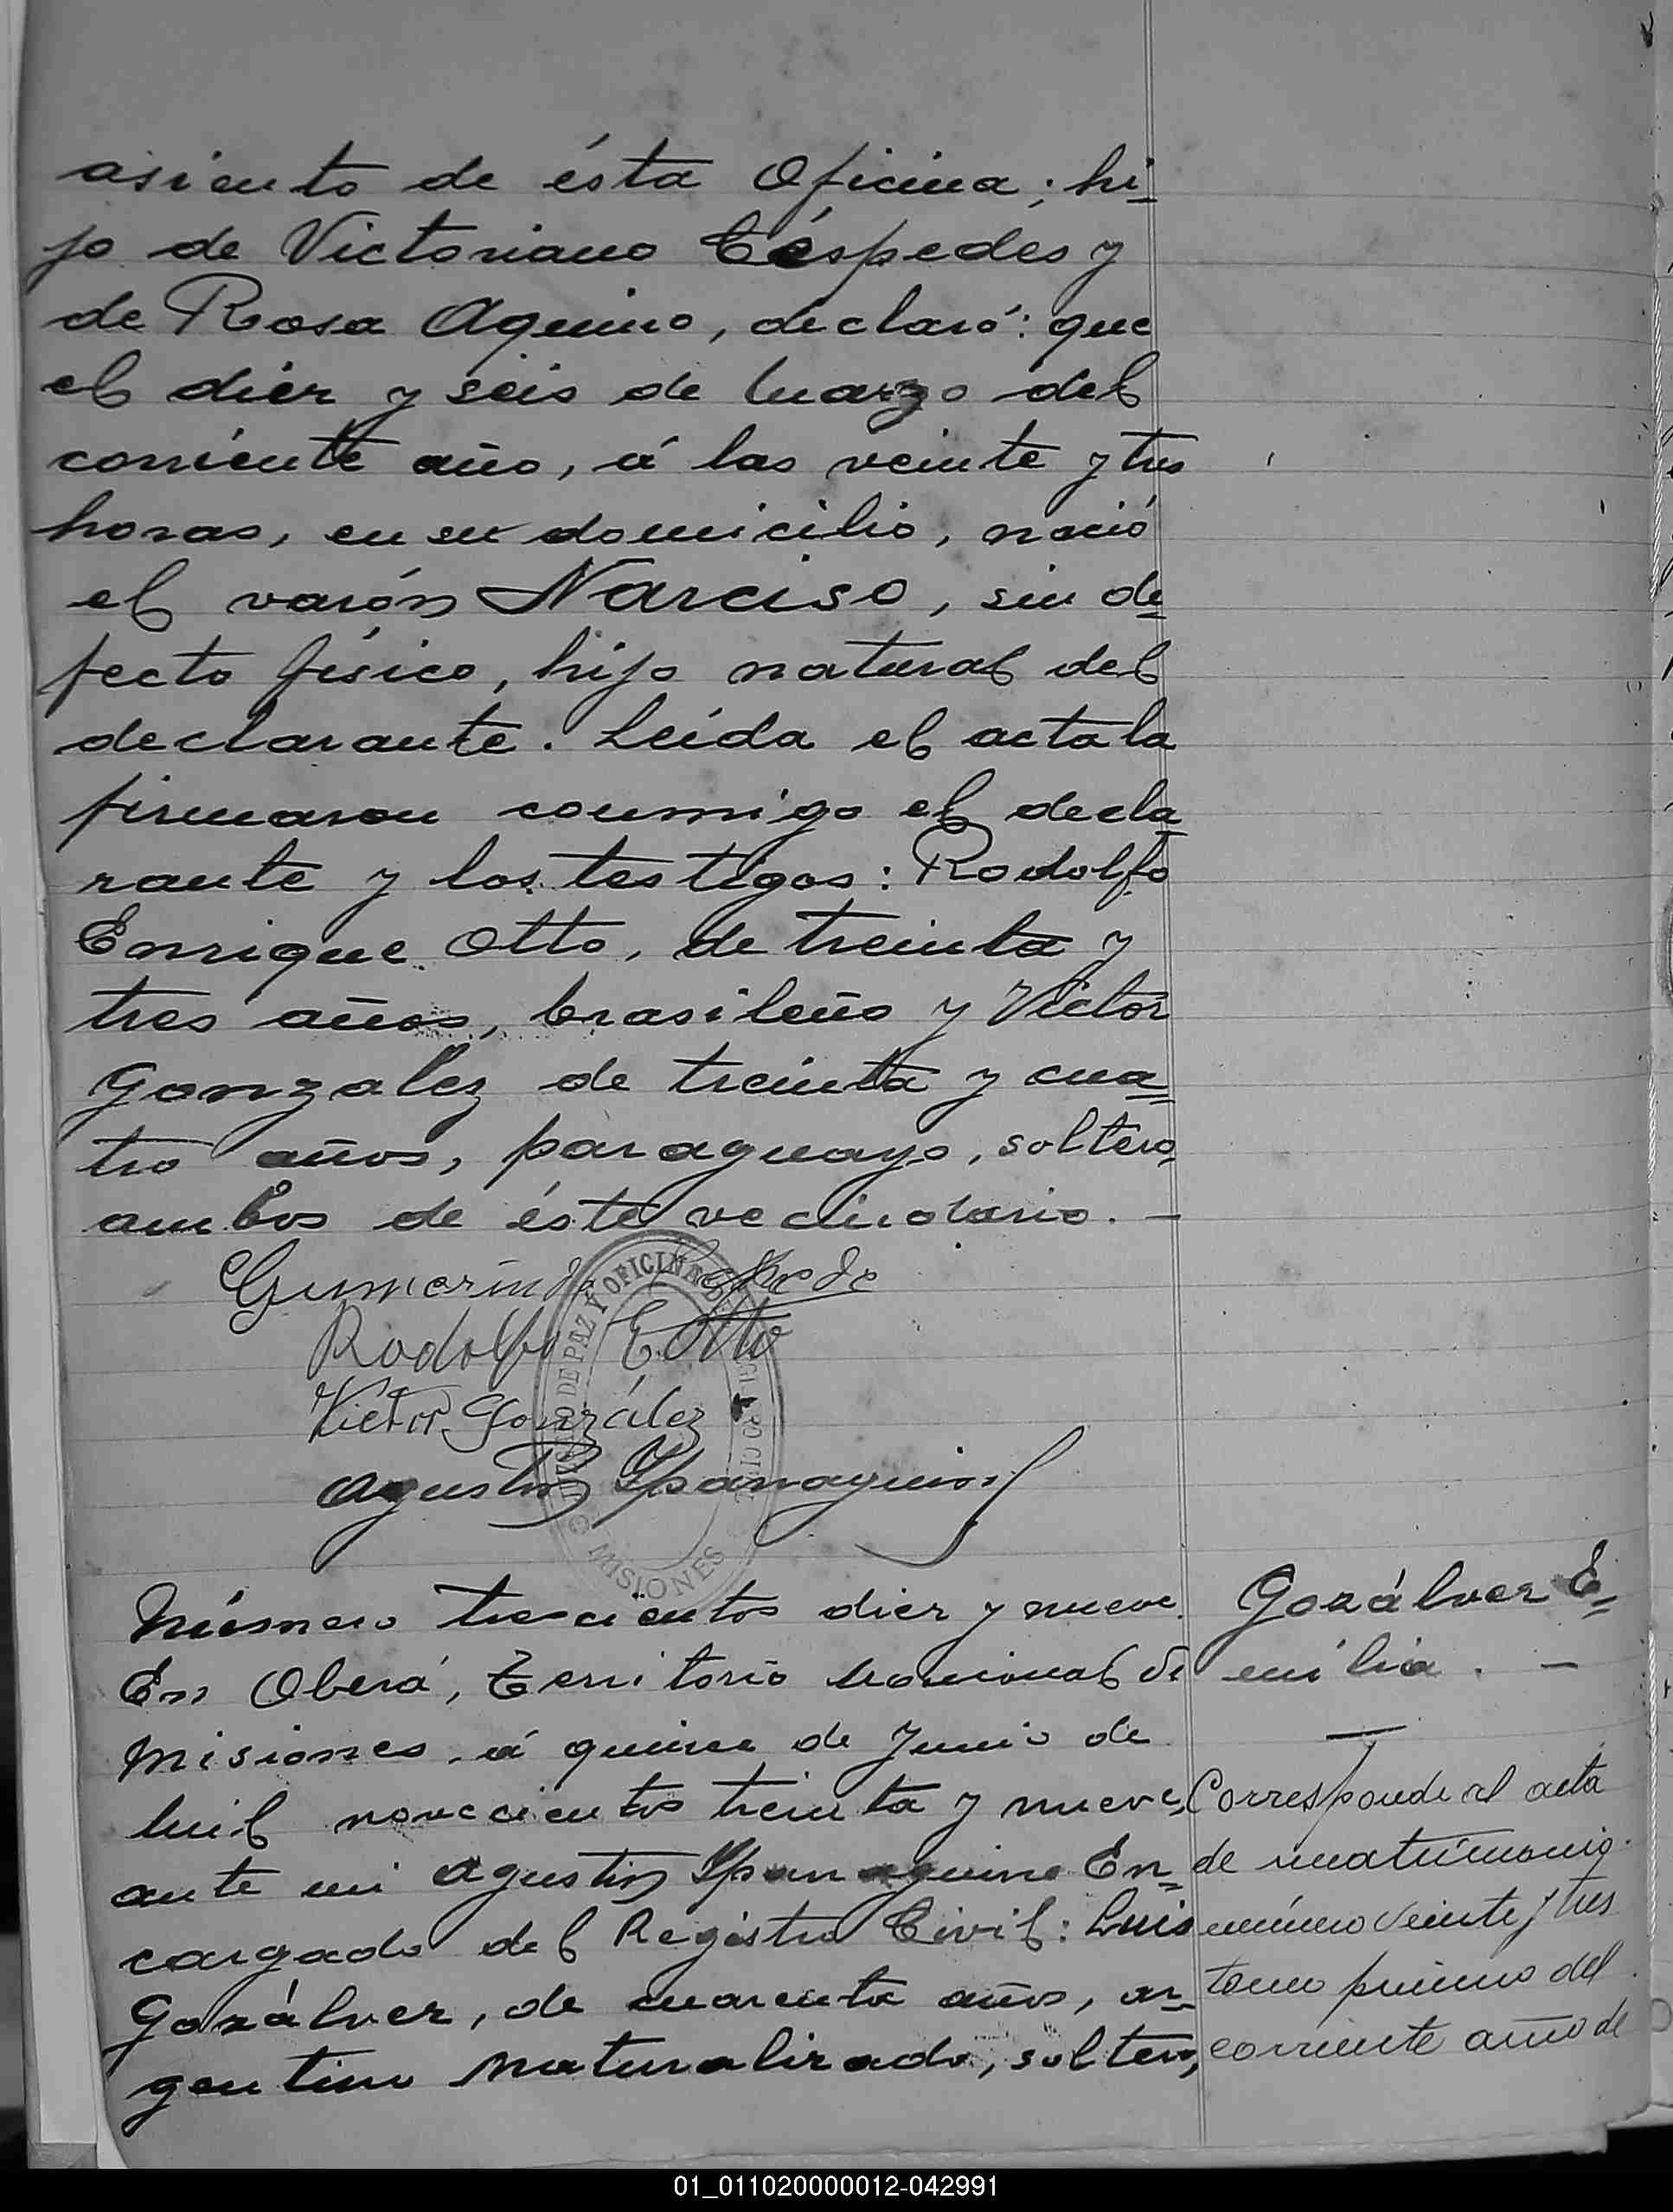 asiento de ésta Oficina; hi-
jo de Victoriano Céspedes y
de Rosa Aquino, declaró: que
el diez y seis de Marzo del
corriente año, á las veinte y tres
horas, en su domicilio, nació
el varón Narciso, sin de-
fecto físico, hijo natural del
declarante. Leída el acta la
firmaron conmigo el decla-
rante y los testigos: Rodolfo
Enrique Otto, de treinta y
tres años, brasileño y Victor
Gonzalez de treinta y cua-
tro años, paraguayo, soltero,
ambos de éste vecindario. —
Gumersindo Cespede
Rodolfo E. Otto
Victor González
Agustin
JUZGADO DE PAZ Y OFICINA
MISIONES
Número trescientos diez y nueve.
En Oberá, Territorio Nacional de
Misiones, á quince de Junio de
mil novecientos treinta y nueve,
ante mi Agustin En-
cargado del Registro Civil: Luis
Gozálvez, de cuarenta años, ar-
gentino naturalizado, soltero,
Gozálvez E-
milia. —
Corresponde al acta
de matrimonio
número veinte y tres
tomo primero del
corriente año de